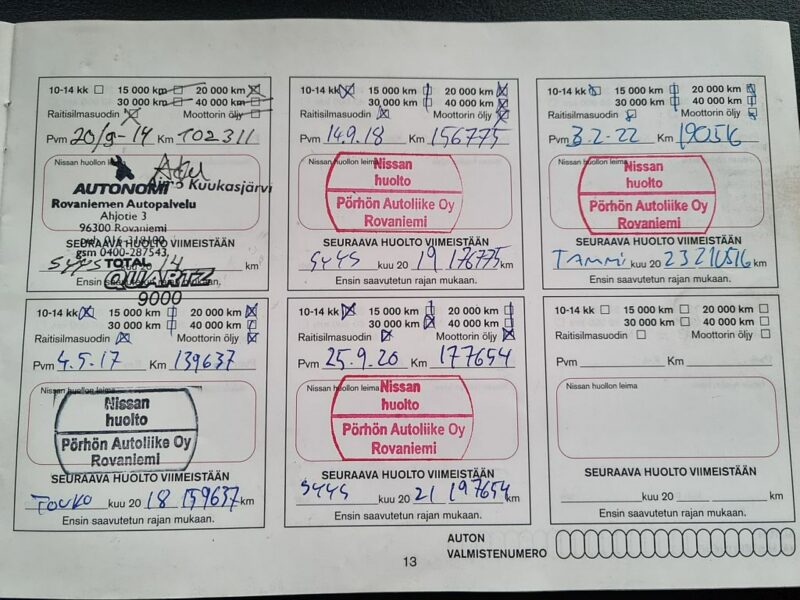 10-14 kk 15 000 km 20 000 km
30 000 km 40 000 km
Raitisilmasuodin Moottorin öljy
Pvm 20/9-14 Km 102311
Nissan huollon leima
AUTONOMI Kuukasjärvi
Rovaniemen Autopalvelu
Ahjotie 3
96300 Rovaniemi
SEURAAVA HUOLTO VIIMEISTÄÄN
gsm 0400-287543,
SYYS kuu 20 14 km
TOTAL
Ensin saavutetun rajan mukaan.
QUARTZ
9000
10-14 kk 15 000 km 20 000 km
30 000 km 40 000 km
Raitisilmasuodin Moottorin öljy
Pvm 14.9.18 Km 156775
Nissan huollon leima
Nissan
huolto
Pörhön Autoliike Oy
Rovaniemi
SEURAAVA HUOLTO VIIMEISTÄÄN
SYYS kuu 20 19 176775 km
Ensin saavutetun rajan mukaan.
10-14 kk 15 000 km 20 000 km
30 000 km 40 000 km
Raitisilmasuodin Moottorin öljy
Pvm 3.2.22 Km 190516
Nissan huollon leima
Nissan
huolto
Pörhön Autoliike Oy
Rovaniemi
SEURAAVA HUOLTO VIIMEISTÄÄN
TAMMI kuu 20 23 210516 km
Ensin saavutetun rajan mukaan.
10-14 kk 15 000 km 20 000 km
30 000 km 40 000 km
Raitisilmasuodin Moottorin öljy
Pvm 4.5.17 Km 139637
Nissan huollon leima
Nissan
huolto
Pörhön Autoliike Oy
Rovaniemi
SEURAAVA HUOLTO VIIMEISTÄÄN
TOUKO kuu 20 18 159637 km
Ensin saavutetun rajan mukaan.
10-14 kk 15 000 km 20 000 km
30 000 km 40 000 km
Raitisilmasuodin Moottorin öljy
Pvm 25.9.20 Km 177654
Nissan huollon leima
Nissan
huolto
Pörhön Autoliike Oy
Rovaniemi
SEURAAVA HUOLTO VIIMEISTÄÄN
SYYS kuu 20 21 197654 km
Ensin saavutetun rajan mukaan.
10-14 kk 15 000 km 20 000 km
30 000 km 40 000 km
Raitisilmasuodin Moottorin öljy
Pvm Km
Nissan huollon leima
SEURAAVA HUOLTO VIIMEISTÄÄN
kuu 20 km
Ensin saavutetun rajan mukaan.
AUTON
VALMISTENUMERO
13